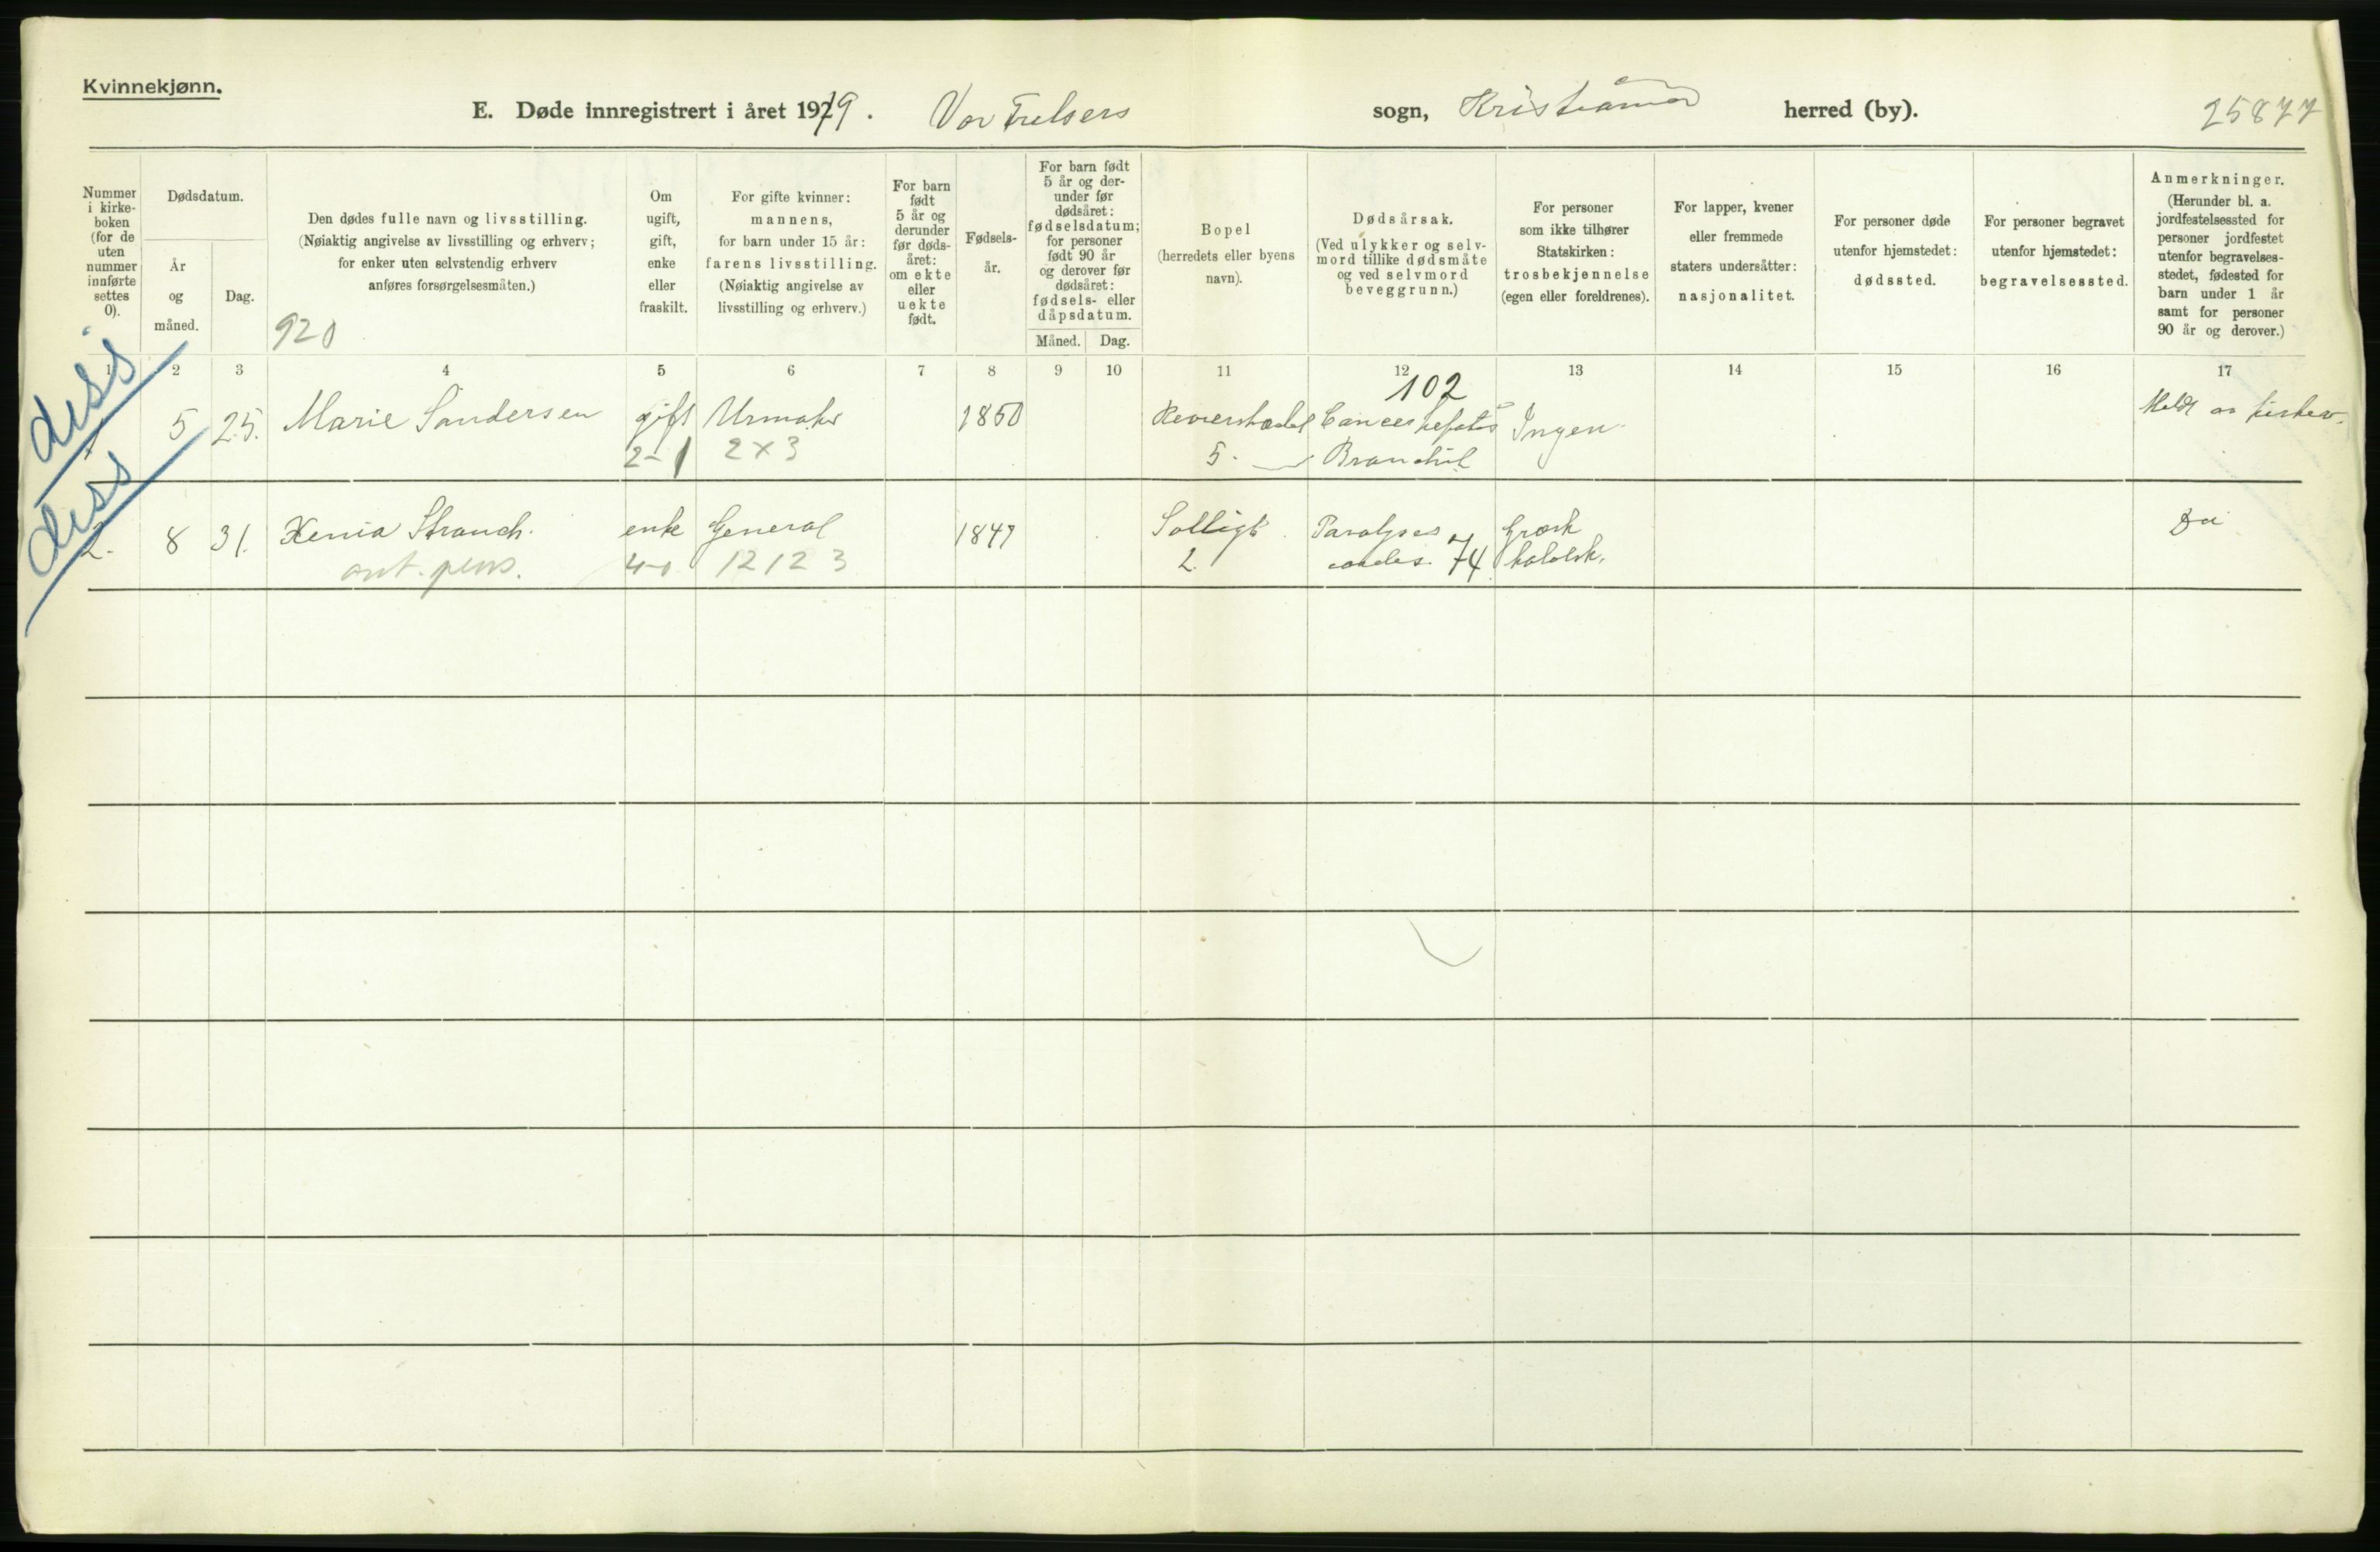 Kvinnekjønn.
E. Døde innregistrert i året 1919. Vor Frelsers sogn, Kristiania herred (by). 25877
Nummer i kirkeboken (for de uten nummer innførte settes 0).
Dødsdatum.
År og måned.
Dag.
Den dødes fulle navn og livsstilling.
(Nøiaktig angivelse av livsstilling og erhverv;
for enker uten selvstendig erhverv
anføres forsørgelsesmåten.)
920
Om
ugift,
gift,
enke
eller
fraskilt.
For gifte kvinner:
mannens,
for barn under 15 år:
farens livsstilling.
(Nøiaktig angivelse av
livsstilling og erhverv.)
For barn
født
5 år og
derunder
før døds-
året:
om ekte
eller
uekte
født.
Fødsels-
år.
For barn født
5 år og der-
under før
dødsåret:
fødselsdatum;
for personer
født 90 år
og derover før
dødsåret:
fødsels- eller
dåpsdatum.
Måned. Dag.
Bopel
(herredets eller byens
navn).
Dødsårsak.
(Ved ulykker og selv-
mord tillike dødsmåte
og ved selvmord
beveggrunn.)
For personer
som ikke tilhører
Statskirken:
trosbekjennelse
(egen eller foreldrenes).
For lapper, kvener
eller fremmede
staters undersåtter:
nasjonalitet.
For personer døde
utenfor hjemstedet:
dødssted.
For personer begravet
utenfor hjemstedet:
begravelsessted.
Anmerkninger.
(Herunder bl. a.
jordfestelsessted for
personer jordfestet
utenfor begravelses-
stedet, fødested for
barn under 1 år
samt for personer
90 år og derover.)
1 2 3 4 5 6 7 8 9 10 11 12 13 14 15 16 17
diss
102
5 25. Marie Sandersen gift Urmaker 1850 Ingen
2-1 2 x 3 5.
diss
2. 8 31. Xenia Strauch. enke General 1847 Græsk
40 12123 2. 74 katolsk.